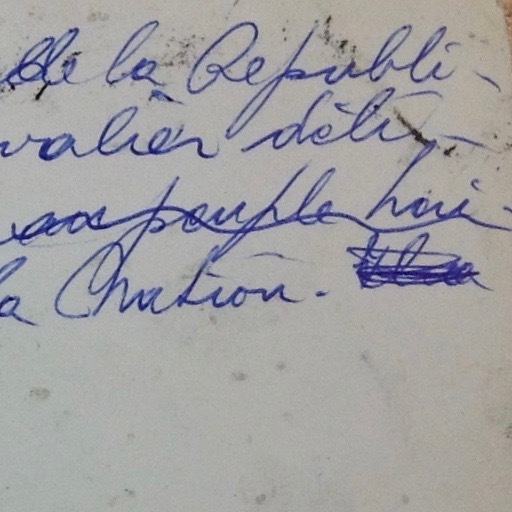 de la Republi-
valier déli-
au peuple hai-
la Chation.